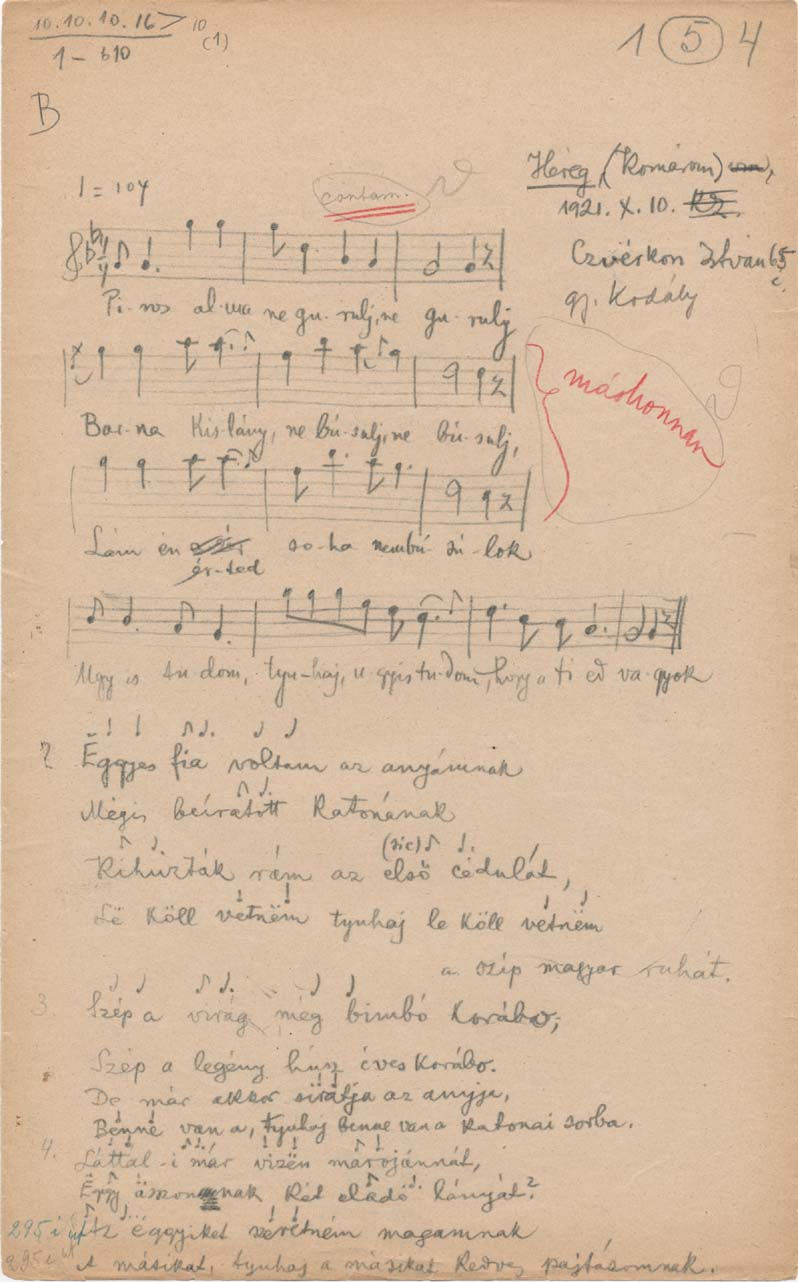 10.10.10.16 10
1 – b10 (1)
1 5 4
B
Héreg (Komárom)
1921. X. 10.
Czvérkon István 65
gj. Kodály
= 104
contam.
Pi-ros al-ma ne gu-rulj, ne gu-rulj
máshonnan
Bar-na kis-lány, ne bú-sulj, ne bú-sulj,
Lám én
ér-ted so-ha nem bú-sú-lok
Ugy is tu-dom, tyu-haj, u gyis tu-dom, hogy a ti ed va-gyok
2 Ëggyes fia voltam az anyámnak
Mégis beíratott katonának
Kihúzták rám az első (sic) cédulát,
Lë köll vetnëm tyuhaj le köll vetnëm
a szép magyar ruhát.
3. Szép a virág még bimbó korábo,
Szép a legény húsz éves korábo.
De már akkor siratja az anyja,
Benne van a, tyuhaj benne van a katonai sorba.
4. Láttal-i már vizën
nak két eladó lányát?
295 i
Az ëggyiket szeretném magamnak
295 i
A másikat, tyuhaj a másikat kedves pajtásomnak.